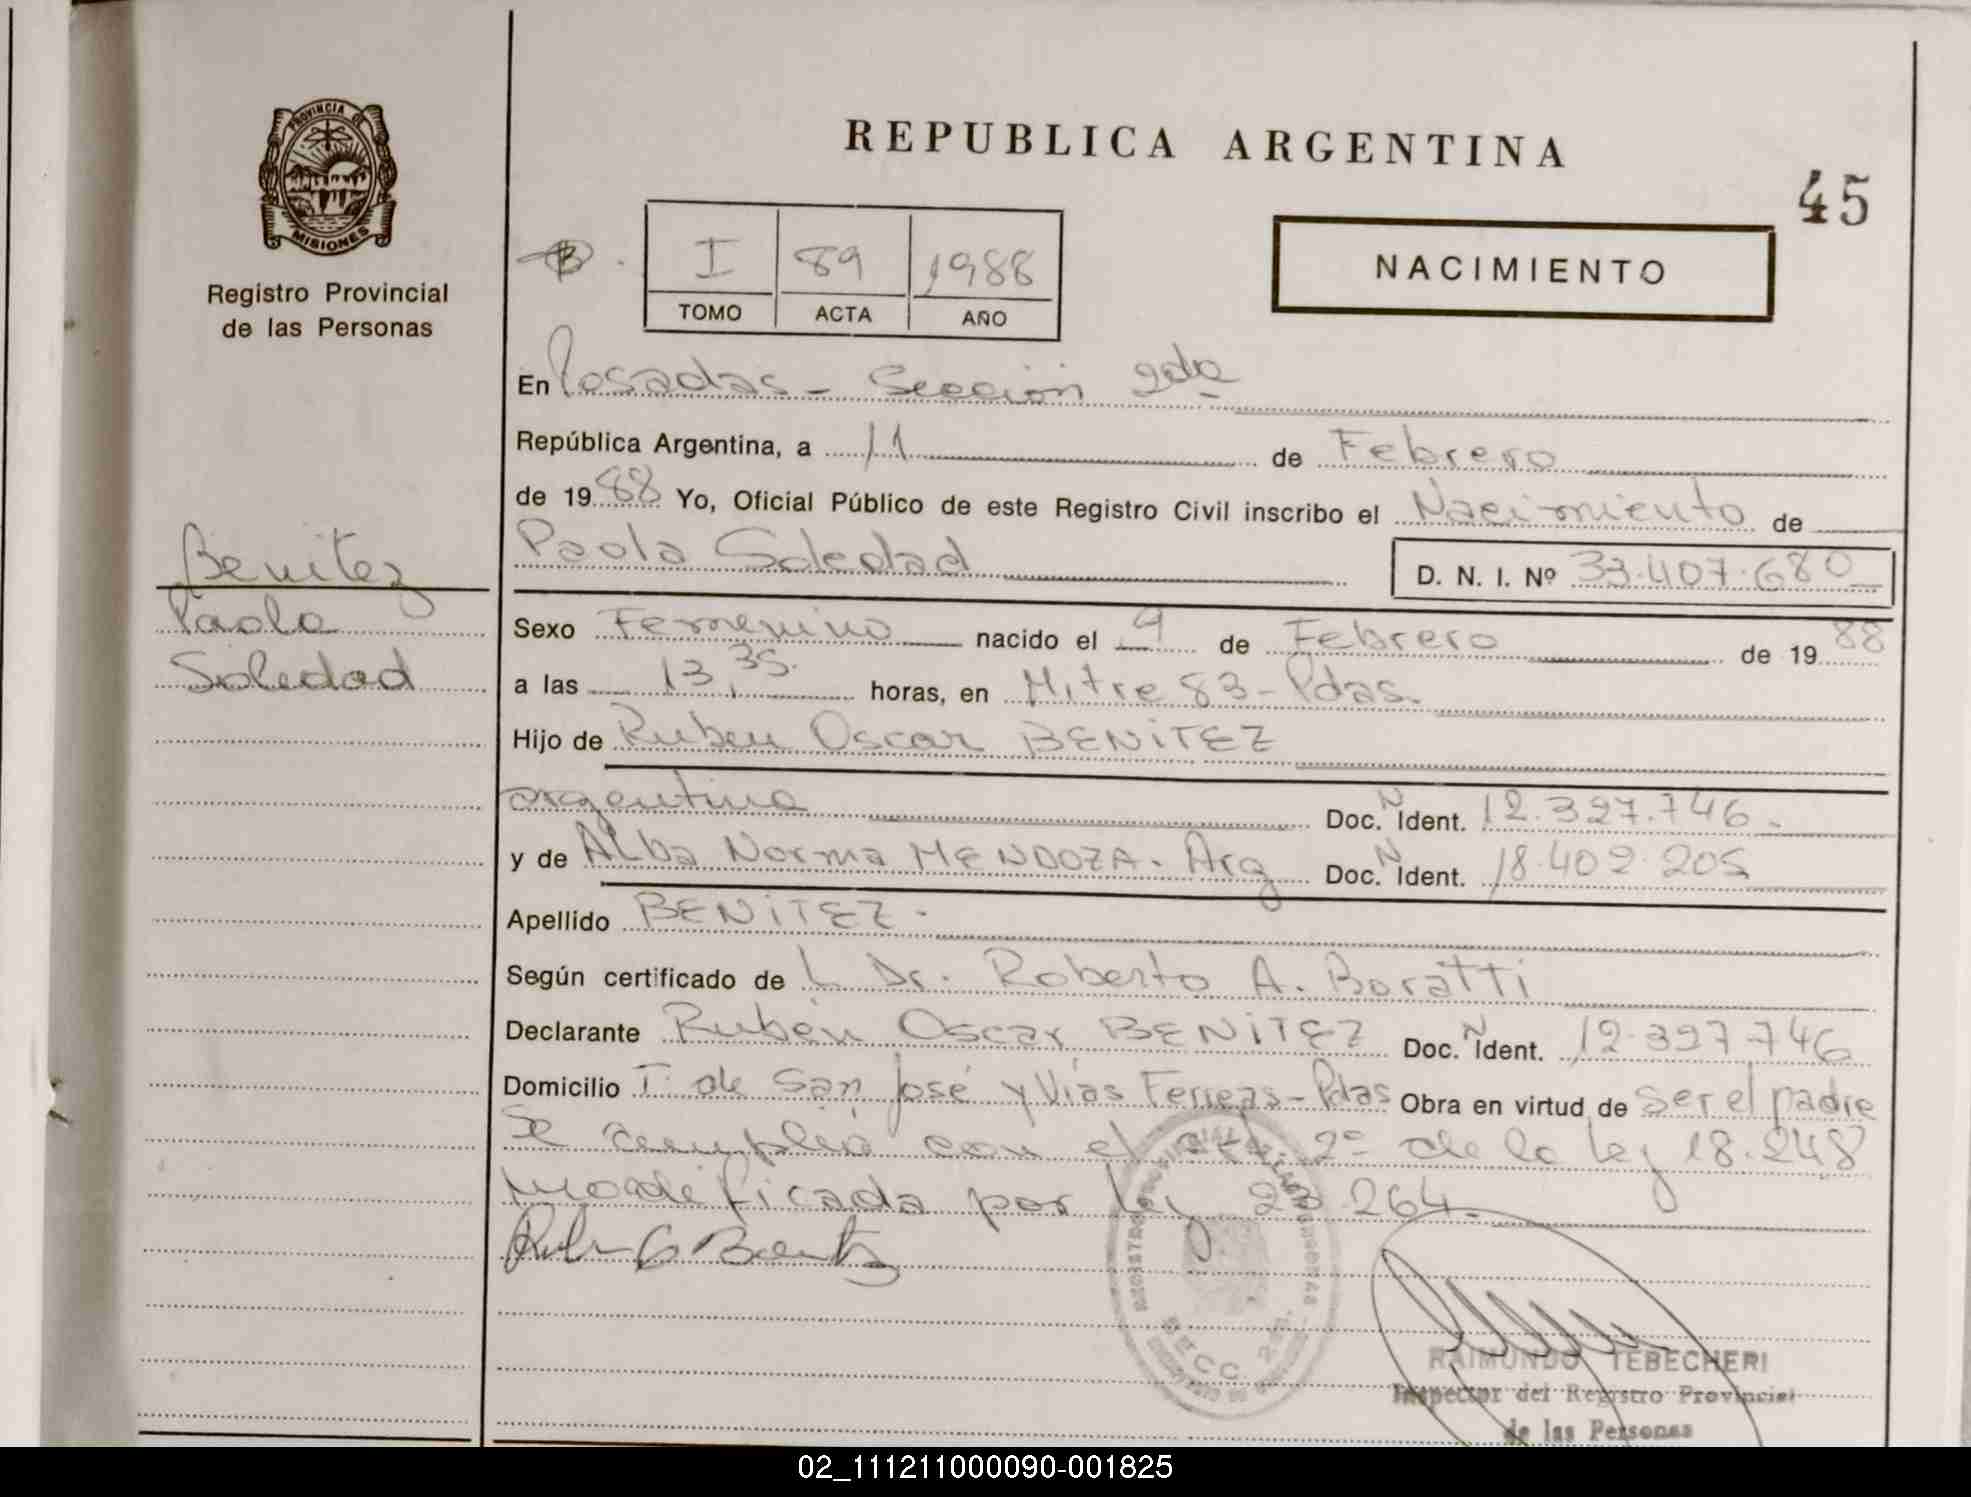 PROVINCIA DE
MISIONES
Registro Provincial
de las Personas
REPUBLICA ARGENTINA
45
I 89 1988
TOMO ACTA AÑO
NACIMIENTO
En Posadas - Sección 2da
República Argentina, a 11 de Febrero
de 1988 Yo, Oficial Público de este Registro Civil inscribo el Nacimiento de
Paola Soledad D. N. I. Nº 33.407.680
Benitez
Paola
Soledad
Sexo Femenino nacido el 9 de Febrero de 1988
a las 13,35. horas, en Mitre 83 - Pdas.
Hijo de Ruben Oscar BENITEZ
argentina Doc. N Ident. 12.327.746.
y de Alba Norma MENDOZA. Arg Doc. N Ident. 18.402.205
Apellido BENITEZ.
Según certificado de L Dr. Roberto A. Boratti
Declarante Rubén Oscar BENITEZ Doc. N Ident. 12.327.746
Domicilio T. de San José y Vías Ferreas - Pdas Obra en virtud de ser el padre
Se cumplió con el art. 2º de la ley 18.248
modificada por ley 23.264.
RAIMUNDO TEBECHERI
Inspector del Registro Provincial
de las Personas
02_111211000090-001825